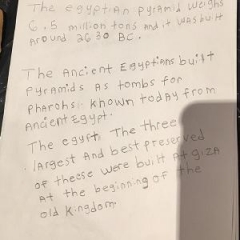 The egyptian pyramid weighs
6.5 million tons and it was built
around 2630 BC.
The Ancient Egyptians built
Pyramids As tombs for
Pharohs. known today from
Ancient Egypt.
The egyft. The three
largest And best preserved
of theese were built At giza
At the beginning of the
old kingdom